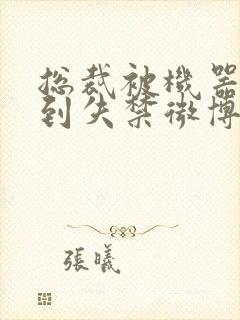 总裁被機器
到失禁微博
張曦